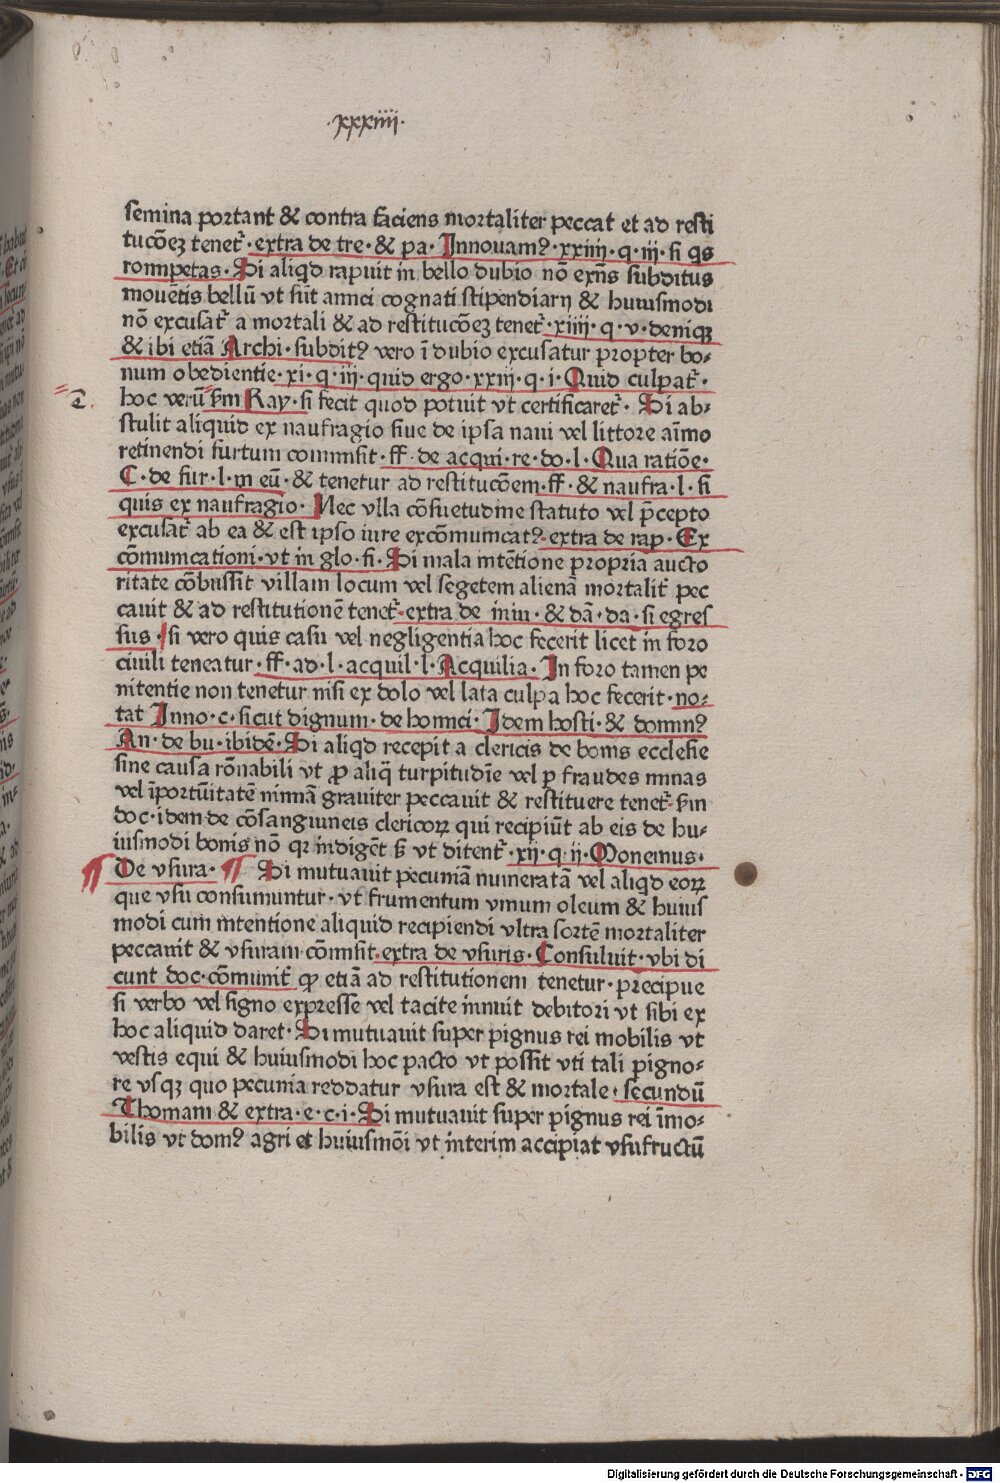 ·xxxiiij·
semina portant & contra faciens mortaliter peccat et ad resti
tucōeꝫ tenet᷑ · extra de tre · & pa · Innouamꝰ · xxiiij · q · iij · si qs
rompetas · Si aliqd rapuit in bello dubio nō exn̄s subditus
mouētis bellū vt sūt amici cognati stipendiarij & huiusmodi
nō excusat᷑ a mortali & ad restitucōeꝫ tenet᷑ · xiiij · q · v · deniqꝫ
& ibi etiā Archi · subditꝰ vero ī dubio excusatur propter bo⸗
num obedientie · xi · q · iij · quid ergo · xxiij · q · i · Quid culpat᷑ ·
hoc verū s̄m Ray · si fecit quod potuit vt certificaret᷑ · Si ab⸗
stulit aliquid ex naufragio siue de ipsa naui vel littore aīmo
retinendi furtum commisit · ff · de acqui · re · do · l · Qua ratiōe ·
C · de fur · l · in eū · & tenetur ad restitucōem · ff · & naufra · l · si
quis ex naufragio · Nec vlla cōsuetudine statuto vel p̄cepto
excusat᷑ ab ea & est ipso iure excōmunicatꝰ · extra de rap · Ex
cōmunicationi · vt in glo · fi · Si mala intētione propria aucto
ritate cōbussit villam locum vel segetem alienā mortalit᷑ pec
cauit & ad restitutionē tenet᷑ · extra de iniu · & dā · da · si egres
sus · si vero quis casu vel negligentia hoc fecerit licet in foro
ciuili teneatur · ff · ad · l · acquil · l · Acquilia · In foro tamen pe
nitentie non tenetur nisi ex dolo vel lata culpa hoc fecerit · no⸗
tat Inno · c · sicut dignum · de homici · Idem hosti · & dominꝰ
An · de bu · ibidē · Si aliqd recepit a clericis de bonis ecclesie
sine causa rōnabili vt ꝓ aliq̄ turpitudīe vel p fraudes minas
vel īportūitatē nimiā grauiter peccauit & restituere tenet᷑ · s̄m
doc · idem de cōsanguineis clericoꝝ qui recipiūt ab eis de hu⸗
iusmodi bonis nō qꝛ indigēt s̄ vt ditent᷑ · xij · q · ij · Monemus ·
De vsura · Si mutuauit pecuniā numeratā vel aliqd eoꝝ
que vsu consumuntur · vt frumentum vinum oleum & huius
modi cum intentione aliquid recipiendi vltra sortē mortaliter
peccauit & vsuram cōmisit · extra de vsuris · Consuluit · vbi di
cunt doc · cōmunit᷑ ꝙ etiā ad restitutionem tenetur · precipue
si verbo vel signo expresse vel tacite innuit debitori vt sibi ex
hoc aliquid daret · Si mutuauit super pignus rei mobilis vt
vestis equi & huiusmodi hoc pacto vt possit vti tali pigno⸗
re vsqꝫ quo pecunia reddatur vsura est & mortale · secundū
Thomam & extra · e · c · i · Si mutuauit super pignus rei īmo⸗
bilis vt domꝰ agri et huiusmōi vt interim accipiat vsufructū
Digitalisierung gefördert durch die Deutsche Forschungsgemeinschaft - DFG